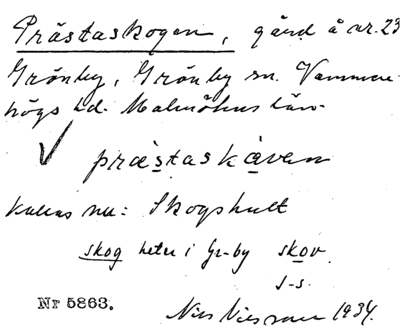 Prästaskogen, gård å nr. 23
Grönby, Grönby sn. Vemmen-
högs hd. Malmöhus län.
præstaskåven
Kallas nu: Skogshult
skog heter i Gr-by skov.
s-s.
Nr 5863. Nils Nilsson 1934.